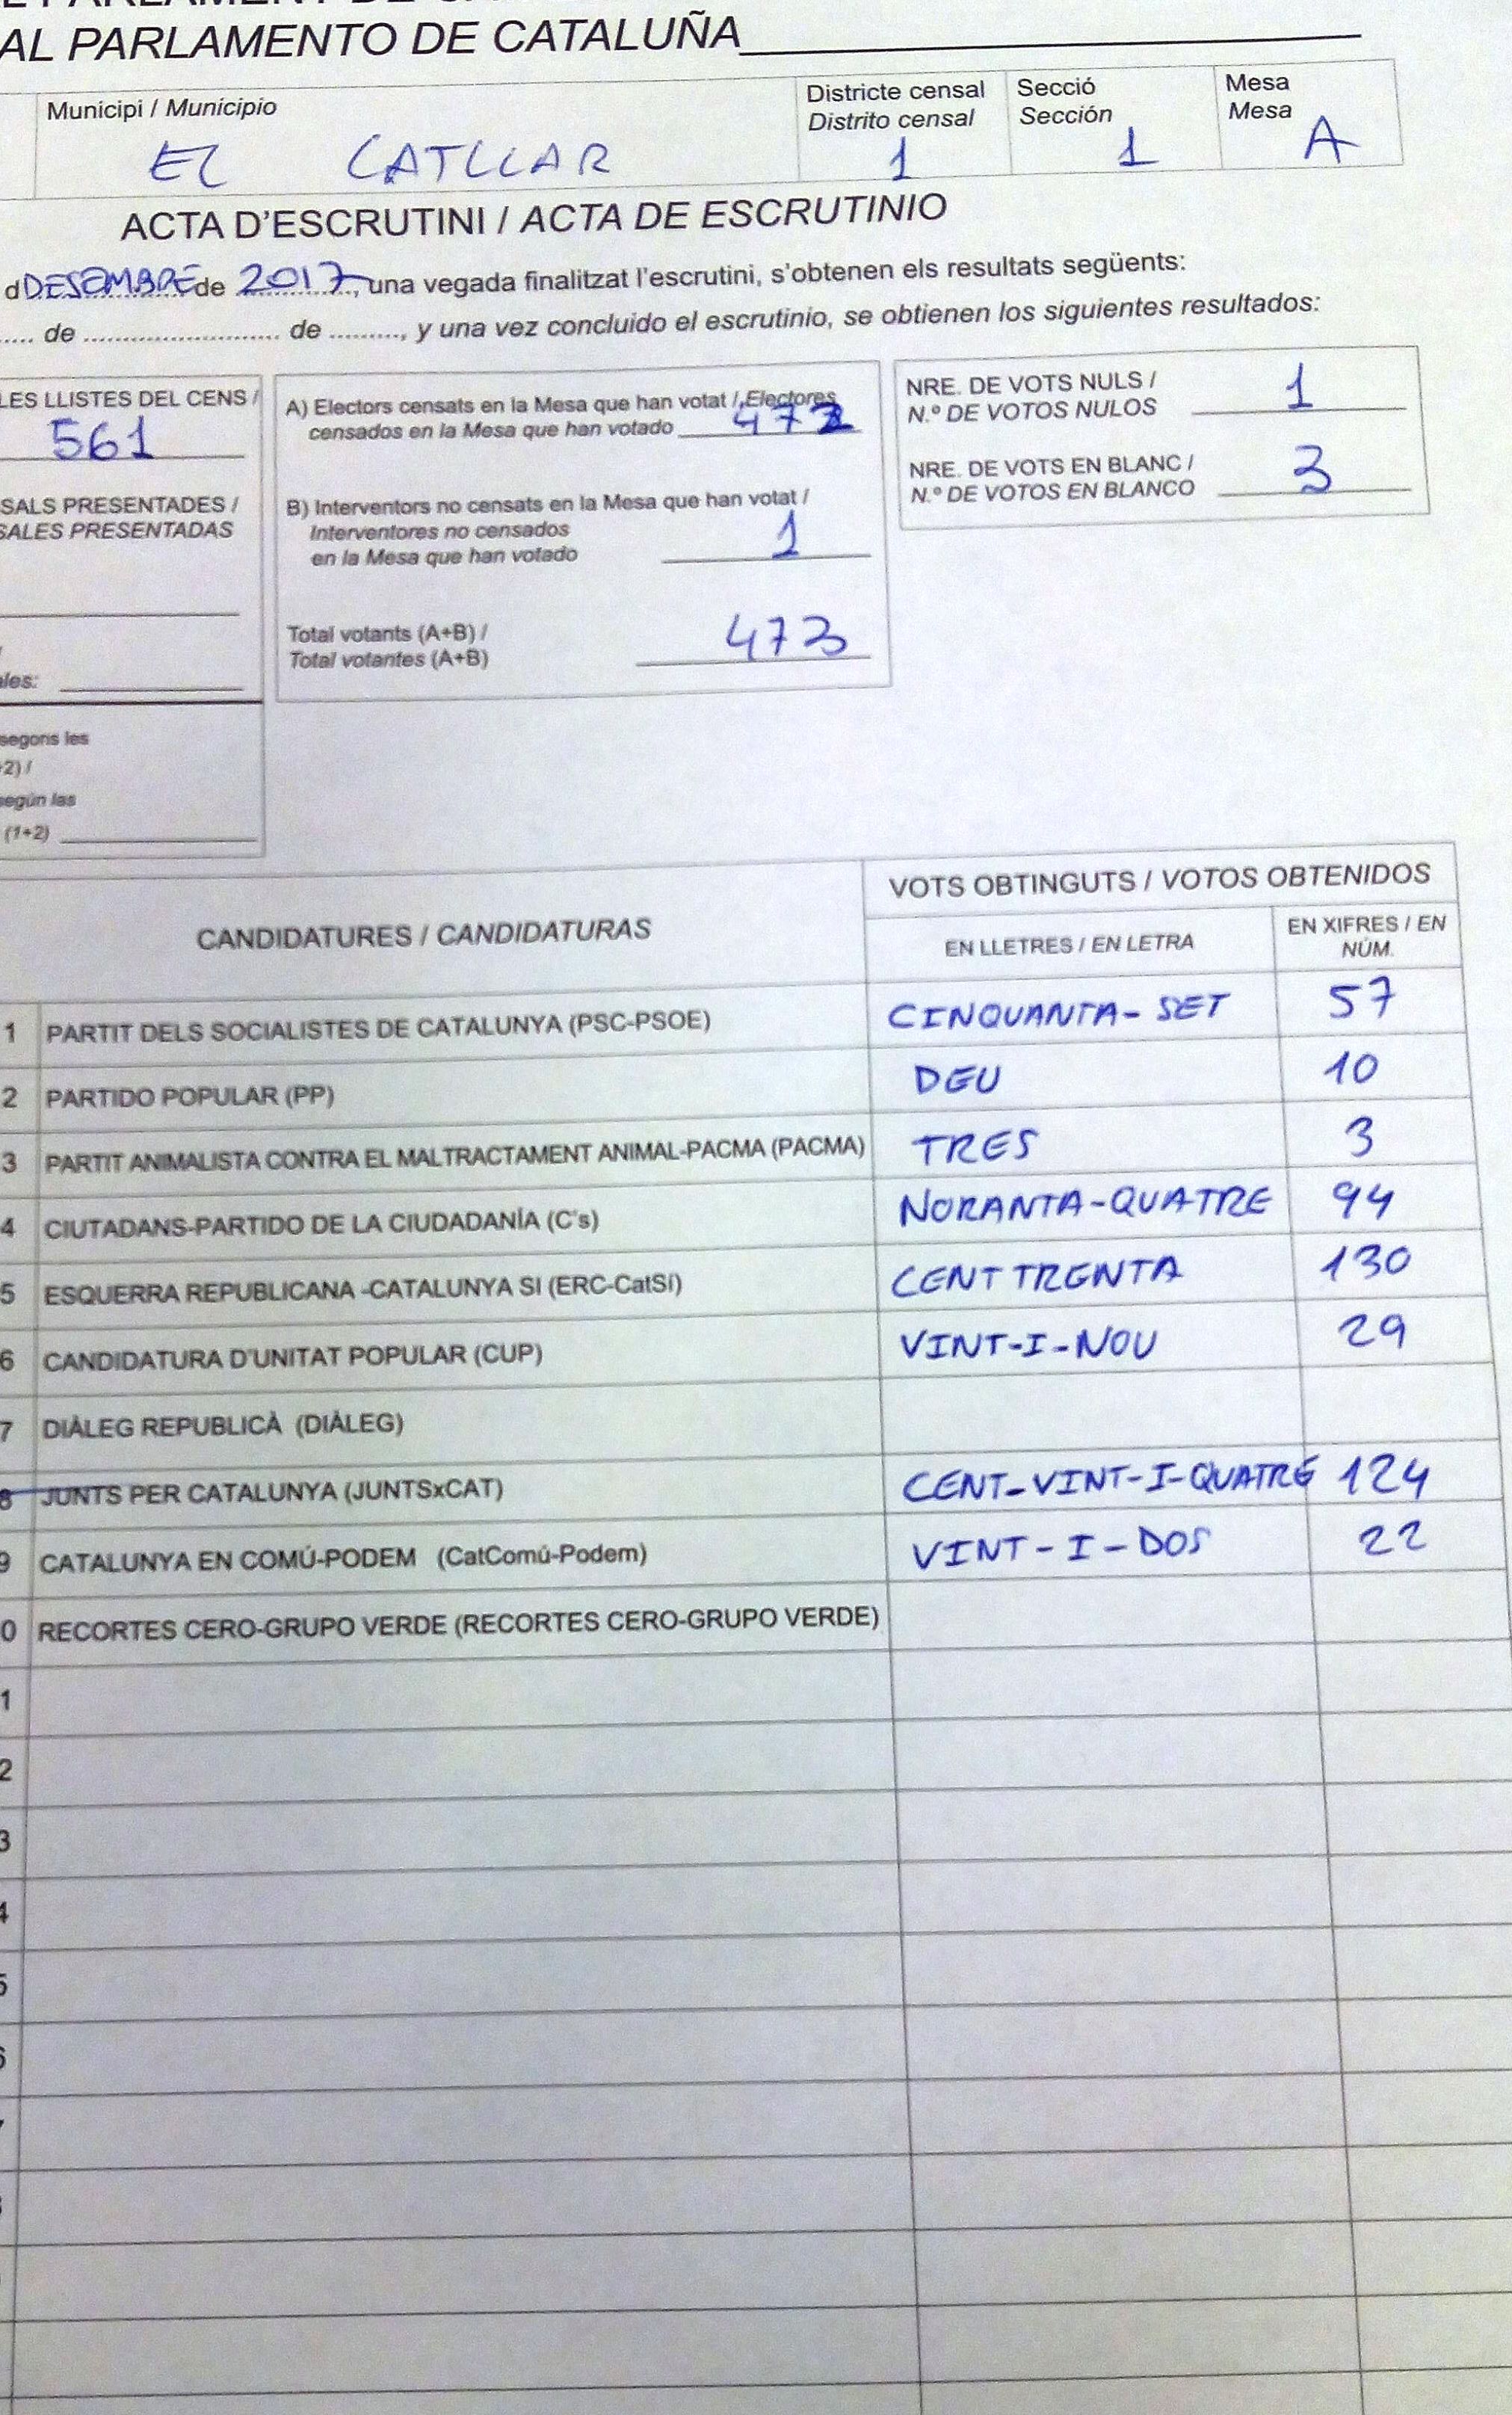 AL PARLAMENTO DE CATALUÑA
Municipi / Municipio
EL CATLLAR
Districte censal
Distrito censal
1
Secció
Sección
1
Mesa
Mesa
A
ACTA D'ESCRUTINI / ACTA DE ESCRUTINIO
d DESEMBRE de 2017, una vegada finalitzat l'escrutini, s'obtenen els resultats següents:
..... de ............................ de .........., y una vez concluido el escrutinio, se obtienen los siguientes resultados:
LES LLISTES DEL CENS /
561
SALS PRESENTADES /
SALES PRESENTADAS
ales:
segons les
+2) /
según las
(1+2)
A) Electors censats en la Mesa que han votat / Electores
censados en la Mesa que han votado 472
B) Interventors no censats en la Mesa que han votat /
Interventores no censados
en la Mesa que han votado 1
Total votants (A+B) /
Total votantes (A+B) 473
NRE. DE VOTS NULS /
N.º DE VOTOS NULOS 1
NRE. DE VOTS EN BLANC /
N.º DE VOTOS EN BLANCO 3
CANDIDATURES / CANDIDATURAS
VOTS OBTINGUTS / VOTOS OBTENIDOS
EN LLETRES / EN LETRA
EN XIFRES / EN
NÚM.
1 PARTIT DELS SOCIALISTES DE CATALUNYA (PSC-PSOE) CINQUANTA-SET 57
2 PARTIDO POPULAR (PP) DEU 10
3 PARTIT ANIMALISTA CONTRA EL MALTRACTAMENT ANIMAL-PACMA (PACMA) TRES 3
4 CIUTADANS-PARTIDO DE LA CIUDADANÍA (C's) NORANTA-QUATRE 94
5 ESQUERRA REPUBLICANA -CATALUNYA SI (ERC-CatSí) CENT TRENTA 130
6 CANDIDATURA D'UNITAT POPULAR (CUP) VINT-I-NOU 29
7 DIÀLEG REPUBLICÀ (DIÀLEG)
8 JUNTS PER CATALUNYA (JUNTSxCAT) CENT-VINT-I-QUATRE 124
9 CATALUNYA EN COMÚ-PODEM (CatComú-Podem) VINT-I-DOS 22
0 RECORTES CERO-GRUPO VERDE (RECORTES CERO-GRUPO VERDE)
1
2
3
4
5
6